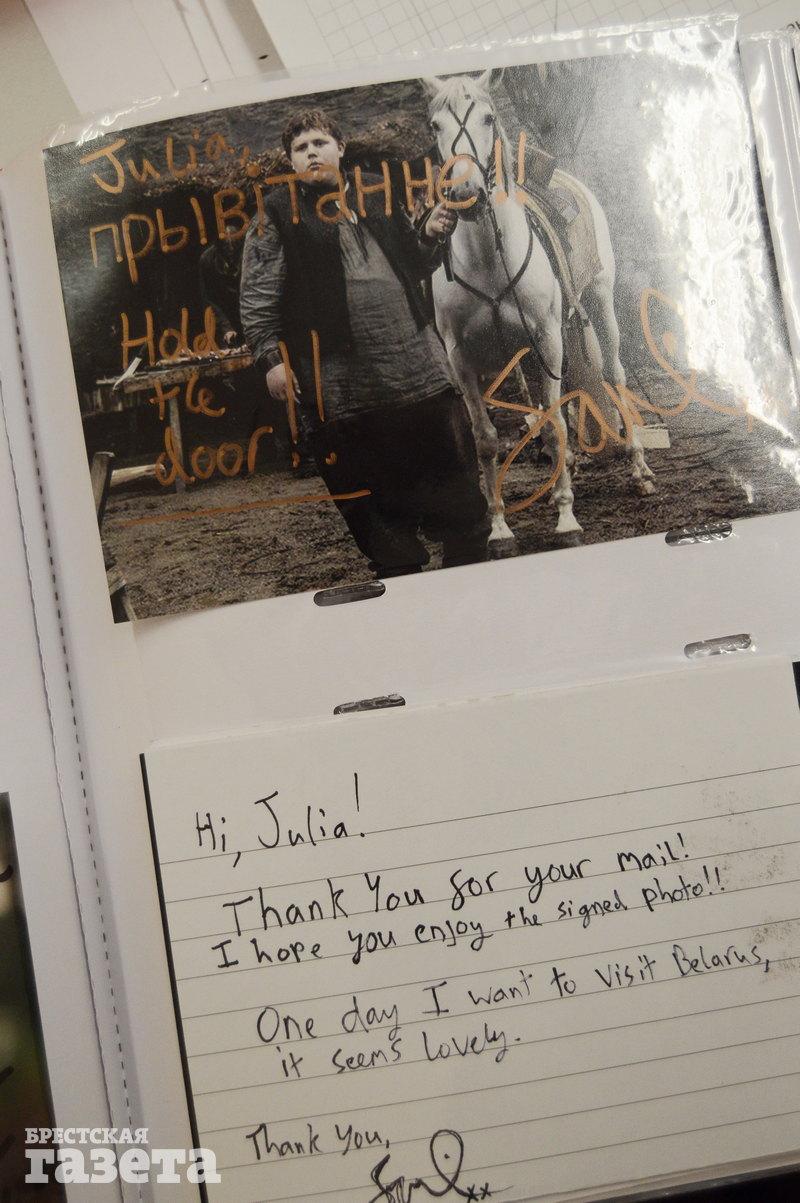 Julia,
прывітанне!!
Hold
the
door!!
Sam
Hi, Julia!
Thank You for your mail!
I hope you enjoy the signed photo!!
One day I want to visit Belarus,
it seems lovely.
Thank You,
Sam xx
БРЕСТСКАЯ
газета